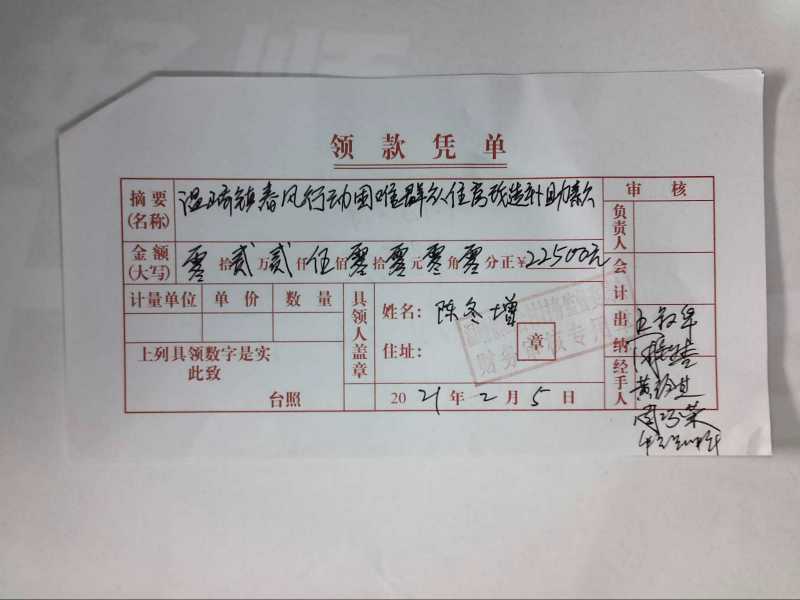 领款凭单
摘要(名称) 温峤镇春风行动困难群众住房改造补助款
审核
负责人
金额(大写) 零拾贰万贰仟伍佰零拾零元零角零分正¥22500元
会计
计量单位 单价 数量
具领人盖章
姓名: 陈冬增
住址:
章
财务审核专用章
出纳
上列具领数字是实
此致
台照
2021年2月5日
经手人